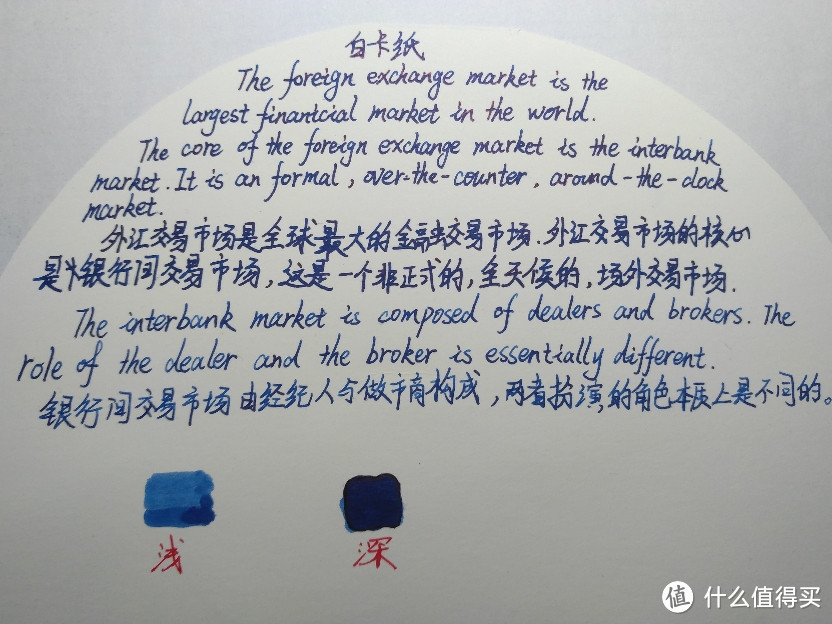 白卡纸
The foreign exchange market is the
largest finanticial market in the world.
The core of the foreign exchange market is the interbank
market. It is an formal, over-the-counter, around-the-clock
market.
外汇交易市场是全球最大的金融交易市场.外汇交易市场的核心
是银行间交易市场,这是一个非正式的,全天候的,场外交易市场.
The interbank market is composed of dealers and brokers. The
role of the dealer and the broker is essentially different.
银行间交易市场由经纪人与做市商构成,两者扮演的角色本质上是不同的。
浅 深
值 什么值得买